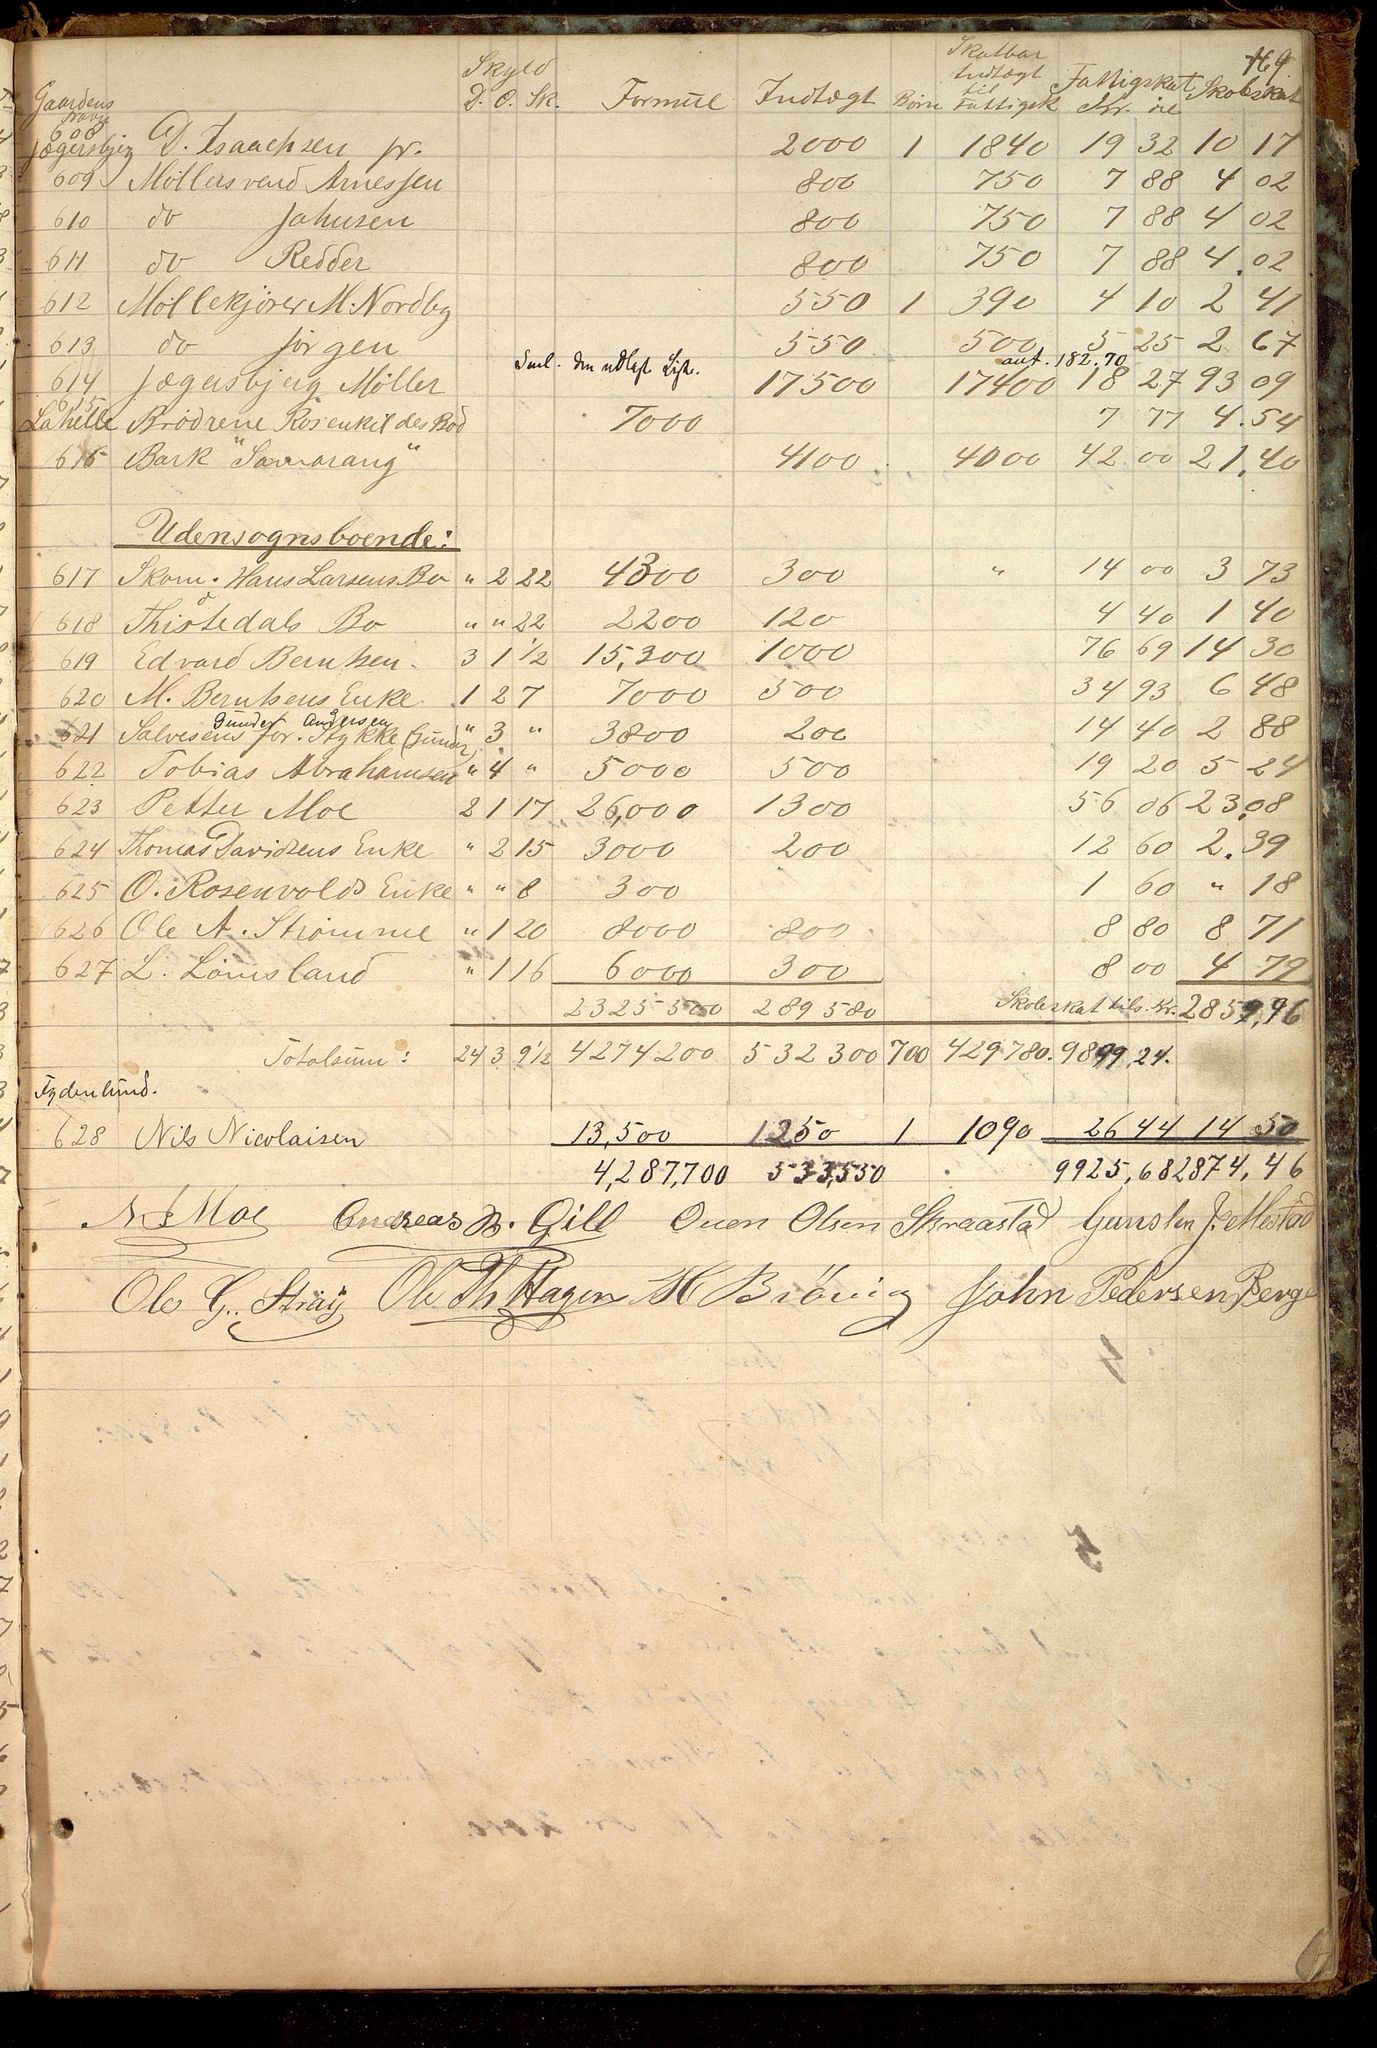 169
Gaardens Navn | Skyld D. O. Sk. | Formue | Indtægt | Börn | Skatbar Indtægt til Fattigsk | Fattigskat Kr. öre | Skoleskat
608 Jægersbjerg D. Isaachsen jr. 2000 1 1840 19 32 10 17
609 Möllersvend Arnessen 800 750 7 88 4 02
610 do Johnsen 800 750 7 88 4 02
611 do Redder 800 750 7 88 4.02
612 Möllekjörer M. Nordby 550 1 390 4 10 2 41
613 do Jörgen 550 500 5 25 2 67
Iml. den udlagt Liste. anf. 182.70
614 Jægersbjerg Möller 17500 17400 18 27 93 09
615 Lahelle Brödrene Rosenkildes Bod 7000 7 77 4.54
616 Bark "Samarang" 4100 4000 42 00 21,40
Udensognsboende:
617 Skom. Hans Larsens Bo " 2 22 4300 300 " 14 00 3 73
618 Thistedals Bo " " 22 2200 120 4 40 1 40
619 Edvard Berntsen. 3 1 1/2 15,300 1000 76 69 14 30
620 M. Berntsens Enke 1 2 7 7000 500 34 93 6 48
Gunder Andersen
621 Salvesens for. Stykke (Gunder) " 3 " 3800 200 14 40 2 88
622 Tobias Abrahamsen " 4 " 5000 500 19 20 5 24
623 Petter Moe 2 1 17 26,000 1300 56 06 23,08
624 Thomas Davidsens Enke " 2 15 3000 200 12 60 2.39
625 O. Rosenvolds Enke " " 8 300 1 60 " 18
626 Ole A. Strömme " 1 20 8000 800 8 80 8 71
627 L. Lömsland " 1 16 6000 300 8 00 4 79
2325500 289580 Skoleskat tils. Kr. 2859,96
Totalsum: 243 9 1/2 4274200 532300 700 429780. 9899,24.
Fydenlund.
628 Nils Nicolaisen 13,500 1250 1 1090 26 44 14 50
4,287,700 533,550 9925,68 2874,46
N J Moe Andreas B. Gill Ouen Olsen Skraastad Gunsten J. Mestad
Ole G. Straÿ Ole Th Hagen H Bröwig John Pedersen Berge